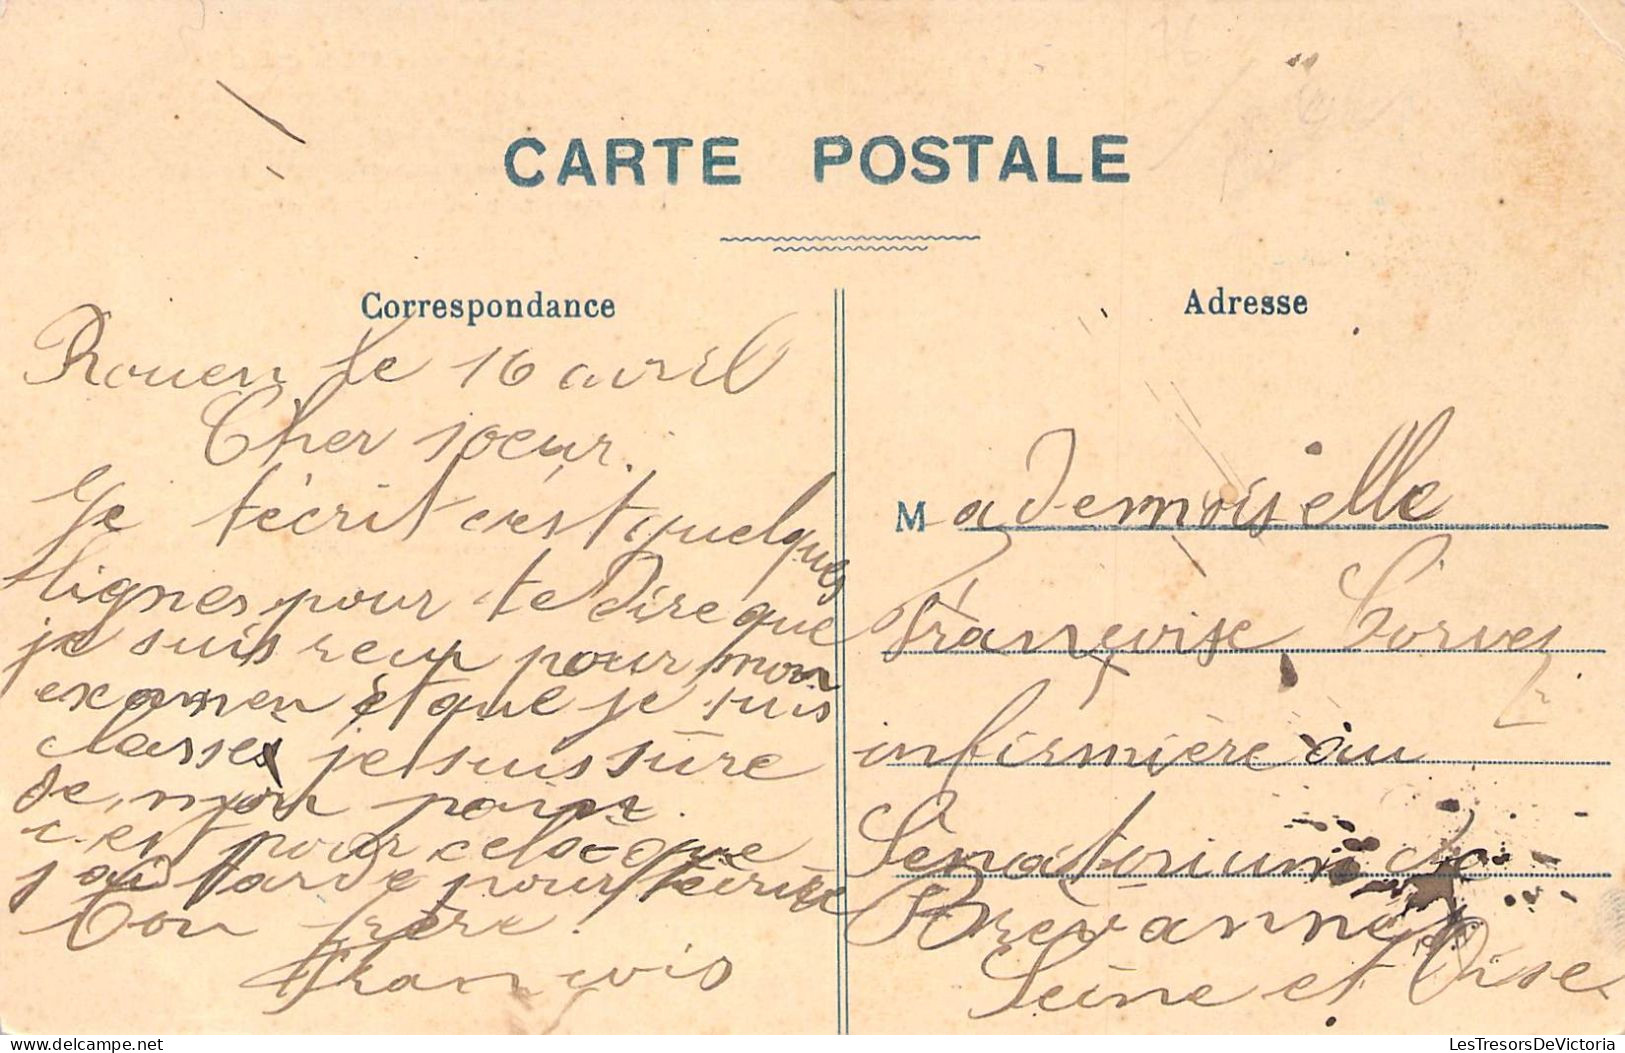 CARTE POSTALE
Correspondance
Rouen le 16 avril
Cher soeur.
Je t'écrit c'est quelques
lignes pour te dire que
je suis reçu pour mon
examen et que je suis
classé je suis sûre
de mon
c'est pour cela que
j'ai tarde pour t'écrire
Ton frère.
François
Adresse
Mademoiselle
Françoise
infirmière au
Sénatorium de
Brévannes
Seine et Oise
delcampe.net
LesTresorsDeVictoria